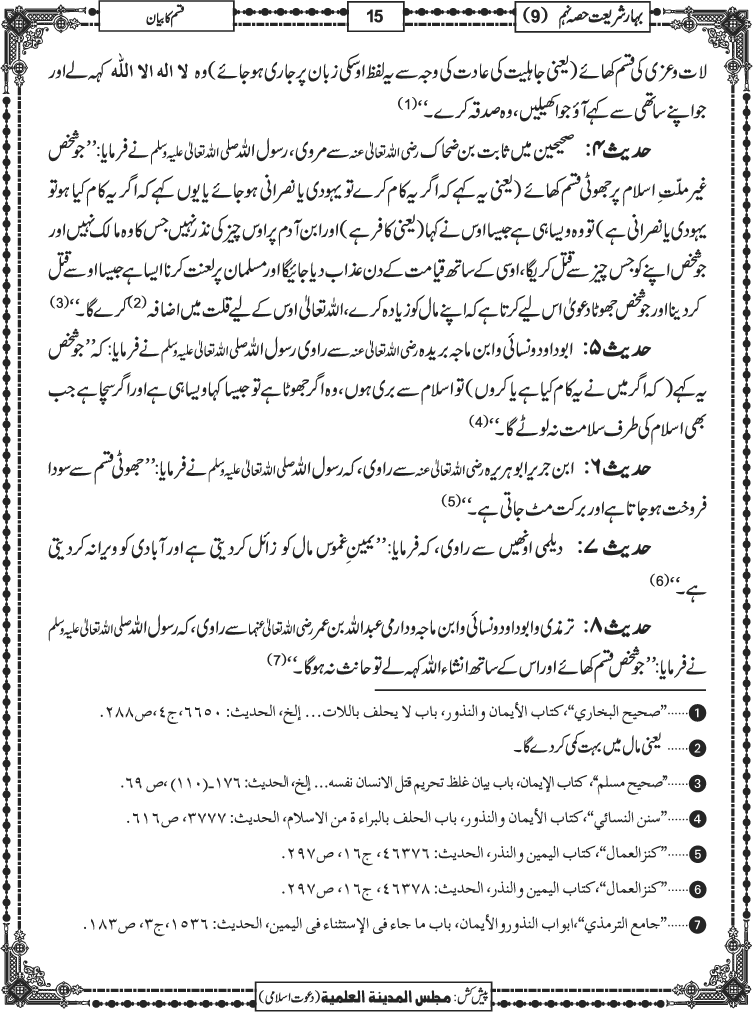 بہار شریعت حصہ نہم (9)
15
قسم کا بیان
لات وعزی کی قسم کھائے (یعنی جاہلیت کی عادت کی وجہ سے یہ لفظ اوسکی زبان پر جاری ہو جائے) وہ لا اله الا الله کہہ لے اور
جو اپنے ساتھی سے کہے آؤ جوا کھیلیں، وہ صدقہ کرے۔‘‘(1)
حدیث ۴: صحیحین میں ثابت بن ضحاک رضی اللہ تعالیٰ عنہ سے مروی، رسول اللہ صلی اللہ تعالیٰ علیہ وسلم نے فرمایا: ’’جو شخص
غیر ملّتِ اسلام پر جھوٹی قسم کھائے (یعنی یہ کہے کہ اگر یہ کام کرے تو یہودی یا نصرانی ہو جائے یا یوں کہے کہ اگر یہ کام کیا ہو تو
یہودی یا نصرانی ہے) تو وہ ویسا ہی ہے جیسا اوس نے کہا (یعنی کافر ہے) اور ابن آدم پر اوس چیز کی نذر نہیں جس کا وہ مالک نہیں اور
جو شخص اپنے کو جس چیز سے قتل کریگا، اوسی کے ساتھ قیامت کے دن عذاب دیا جائیگا اور مسلمان پر لعنت کرنا ایسا ہے جیسا اوسے قتل
کر دینا اور جو شخص جھوٹا دعویٰ اس لیے کرتا ہے کہ اپنے مال کو زیادہ کرے، اللہ تعالیٰ اوس کے لیے قلت میں اضافہ(2) کرے گا۔‘‘(3)
حدیث ۵: ابو داود و نسائی وابن ماجہ بریدہ رضی اللہ تعالیٰ عنہ سے راوی رسول اللہ صلی اللہ تعالیٰ علیہ وسلم نے فرمایا: کہ ’’جو شخص
یہ کہے (کہ اگر میں نے یہ کام کیا ہے یا کروں) تو اسلام سے بری ہوں، وہ اگر جھوٹا ہے تو جیسا کہا ویسا ہی ہے اور اگر سچا ہے جب
بھی اسلام کی طرف سلامت نہ لوٹے گا۔‘‘(4)
حدیث ۶: ابن جریر ابو ہریرہ رضی اللہ تعالیٰ عنہ سے راوی، کہ رسول اللہ صلی اللہ تعالیٰ علیہ وسلم نے فرمایا: ’’جھوٹی قسم سے سودا
فروخت ہو جاتا ہے اور برکت مٹ جاتی ہے۔‘‘(5)
حدیث ۷: دیلمی اونھیں سے راوی، کہ فرمایا: ’’یمینِ غموس مال کو زائل کر دیتی ہے اور آبادی کو ویرانہ کر دیتی
ہے۔‘‘(6)
حدیث ۸: ترمذی و ابو داود و نسائی وابن ماجہ ودارمی عبداللہ بن عمر رضی اللہ تعالیٰ عنہما سے راوی، کہ رسول اللہ صلی اللہ تعالیٰ علیہ وسلم
نے فرمایا: ’’جو شخص قسم کھائے اور اس کے ساتھ انشاءاللہ کہہ لے تو حانث نہ ہوگا۔‘‘(7)
1 ......”صحيح البخاري“، كتاب الأيمان والنذور، باب لا يحلف باللات... إلخ، الحديث: ٦٦٥٠، ج٤، ص٢٨٨.
2 ...... یعنی مال میں بہت کمی کردے گا۔
3 ......”صحيح مسلم“، كتاب الإيمان، باب بيان غلظ تحريم قتل الانسان نفسه... إلخ، الحديث: ١٧٦ـ(١١٠)، ص ٦٩.
4 ......”سنن النسائي“، كتاب الأيمان والنذور، باب الحلف بالبراءة من الاسلام، الحديث: ٣٧٧٧، ص٦١٦.
5 ......”كنزالعمال“، كتاب اليمين والنذر، الحديث: ٤٦٣٧٦، ج١٦، ص٢٩٧.
6 ......”كنزالعمال“، كتاب اليمين والنذر، الحديث: ٤٦٣٧٨، ج١٦، ص٢٩٧.
7 ......”جامع الترمذي“، ابواب النذور والأيمان، باب ما جاء فى الإستثناء فى اليمين، الحديث: ١٥٣٦، ج٣، ص١٨٣.
پیش کش: مجلس المدينة العلمية (دعوت اسلامی)